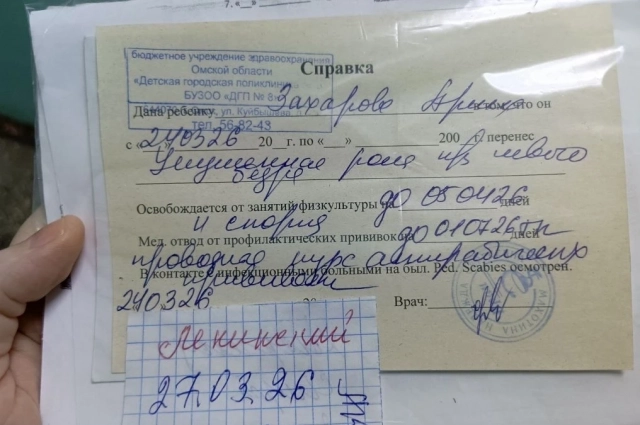 7. «
бюджетное учреждение здравоохранения
Омской области
«Детская городская поликлиника
БУЗОО «ДГП № 8»
ул. Куйбышева
тел. 56-82-43
Справка
Дана ребенку Захарова о том, что он
с « 240326 20 г. по « » 200 г. перенес
Укушенная рана н/з левого
бедра
Освобождается от занятий физкультуры на до 050426 дней
и спорта
Мед. отвод от профилактических прививок до 010726 дней
курс
прививок
В контакте с инфекционными больными на был. Ped. Scabies осмотрен.
240326
Врач:
Ленинский
27.03.26